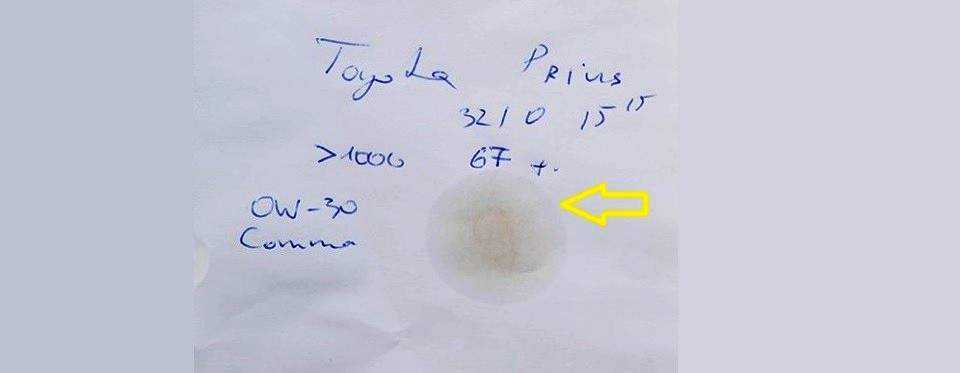 Toyota Prius
3210 15 15
>1000 67 т.
0W-30
Comma